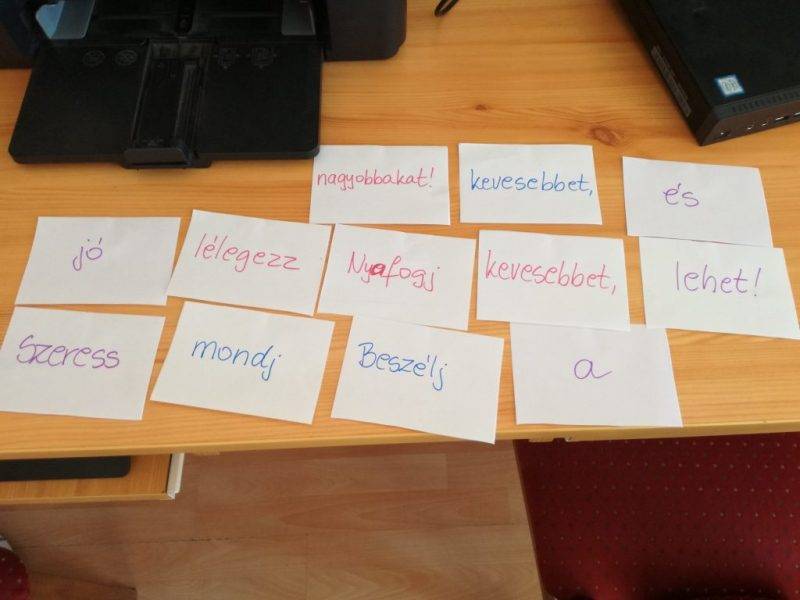 nagyobbakat! kevesebbet, és
jó lélegezz Nyafogj kevesebbet, lehet!
Szeress mondj Beszélj a